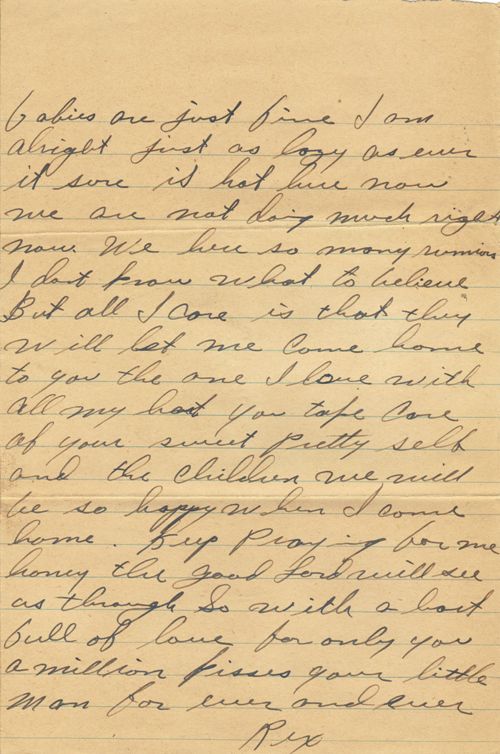 babies are just fine I am
alright just as lazy as ever
it sure is hot here now
we are not doing much right
now. We here so many rumors
I dont know what to believe
But all I care is that they
will let me come home
to you the one I love with
all my hart you take care
of your sweet pretty self
and the children we will
be so happy when I come
home. Keep Praying for me
honey the good Lord will see
us through So with a hart
full of love for only you
a million kisses your little
man for ever and ever
Rex